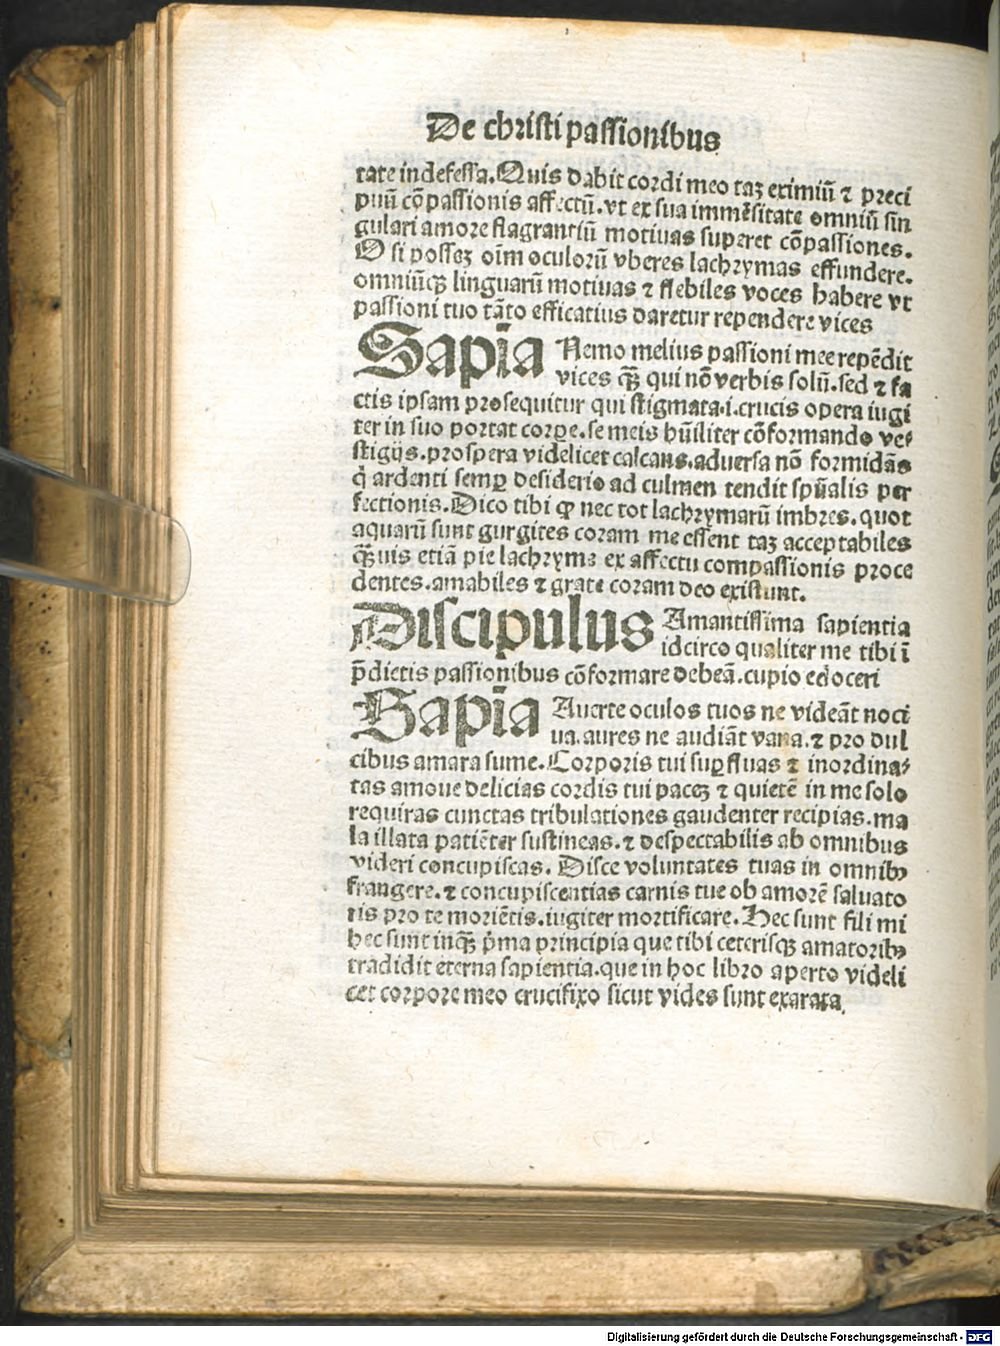 De christi passionibus
tate indefessa. Quis dabit cordi meo taꝫ eximiū ⁊ preci
puū cōpassionis affectū. vt ex sua immēsitate omniū sin
gulari amore flagrantiū motiuas superet cōpassiones.
O si posseꝫ oīm oculorū vberes lachrymas effundere.
omniūqꝫ linguarū motiuas ⁊ flebiles voces habere vt
passioni tuo tāto efficatius daretur rependere vices
Sapīa Nemo melius passioni mee repēdit
vices qꝫ̄ qui nō verbis solū. sed ⁊ fa
ctis ipsam prosequitur qui stigmata .i. crucis opera iugi
ter in suo portat corꝑe. se meis hūiliter cōformando ve⸗
stigijs. prospera videlicet calcans. aduersa nō formidās
q̇ ardenti semꝑ desiderio ad culmen tendit spūalis per
fectionis. Dico tibi ꝙ nec tot lachrymarū imbres. quot
aquarū sunt gurgites coram me essent taꝫ acceptabiles
qꝫ̄uis etiā pie lachryme ex affectu compassionis proce
dentes. amabiles ⁊ grate coram deo existunt.
Discipulus Amantissima sapientia
idcirco qualiter me tibi ī
p̄dictis passionibus cōformare debeā. cupio edoceri
Sapīa Auerte oculos tuos ne videāt noci
ua. aures ne audiāt vana. ⁊ pro dul
cibus amara sume. Corporis tui suꝑfluas ⁊ inordina⸗
tas amoue delicias cordis tui paceꝫ ⁊ quietē in me solo
requiras cunctas tribulationes gaudenter recipias. ma
la illata patiēter sustineas. ⁊ despectabilis ab omnibus
videri concupiscas. Disce voluntates tuas in omnibꝰ
frangere. ⁊ concupiscentias carnis tue ob amorē saluato
ris pro te moriētis. iugiter mortificare. Hec sunt fili mi
hec sunt inqꝫ̄ p̄ma principia que tibi ceterisqꝫ amatoribꝰ
tradidit eterna sapientia. que in hoc libro aperto videli
cet corpore meo crucifixo sicut vides sunt exarata.
Digitalisierung gefördert durch die Deutsche Forschungsgemeinschaft - DFG